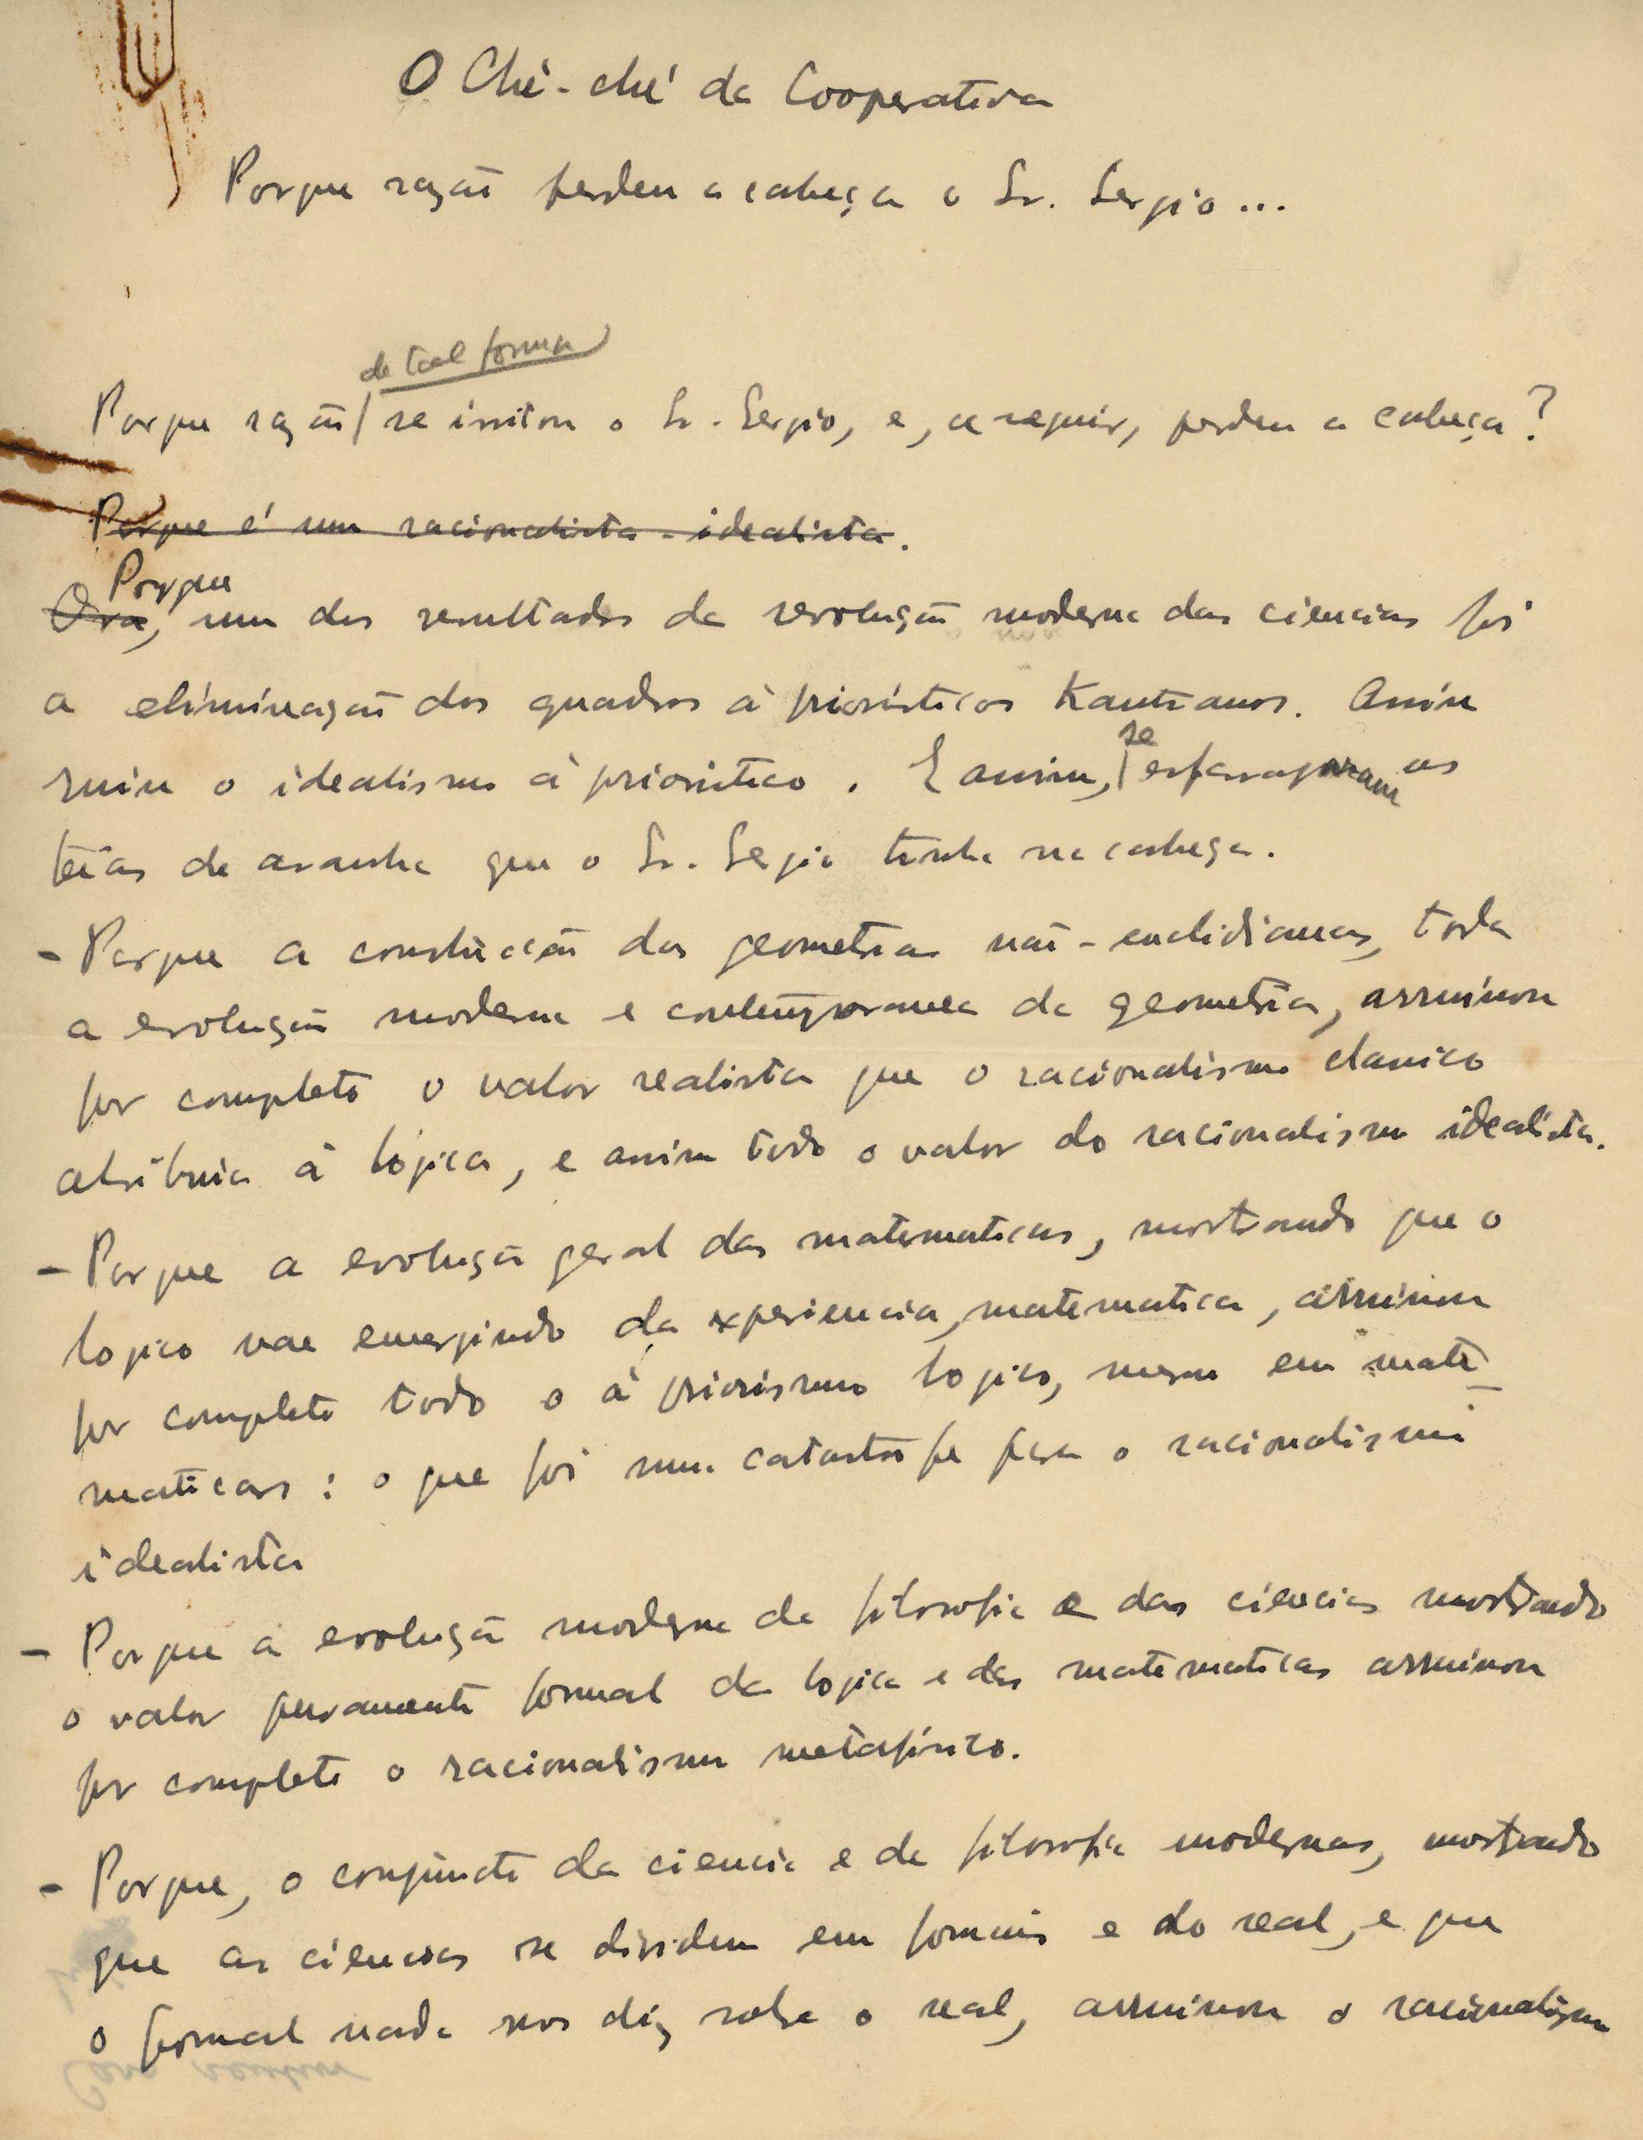 O Ché-ché da Cooperativa
Porque razão perdeu a cabeça o Sr. Sergio...
de tal forma
Porque razão se irritou o Sr. Sergio, e, a seguir, perdeu a cabeça?
Porque é um racionalista-idealista.
Porque
Ora, um dos resultados da revolução moderna das ciencias foi
a eliminação dos quadros à prioristicos Kantianos. Assim
ruiu o idealismo à prioristico. E assim, se esfarraparam as
teias de aranha que o Sr. Sergio tinha na cabeça.
- Porque a construcção das geometrias não-euclidianas, toda
a evolução moderna e contemporanea da geometria, arruinou
por completo o valor realista que o racionalismo classico
atribuia à lógica, e assim todo o valor do racionalismo idealista.
- Porque a evolução geral das matematicas, mostrando que o
logico vae emergindo da experiencia, matematica, arruinou
por completo todo o à priorismo logico, mesmo em mate-
maticas: o que foi uma catastrofe para o racionalismo
idealista
- Porque a evolução moderna da filosofia e das ciencias mostrando
o valor puramente formal da logica e das matematicas arruinou
por completo o racionalismo metafisico.
- Porque, o conjuncto da ciencia e da filosofia modernas, mostrando
que as ciencias se dividem em formais e do real, e que
o formal nada nos diz sobre o real, arruinou o racionalismo